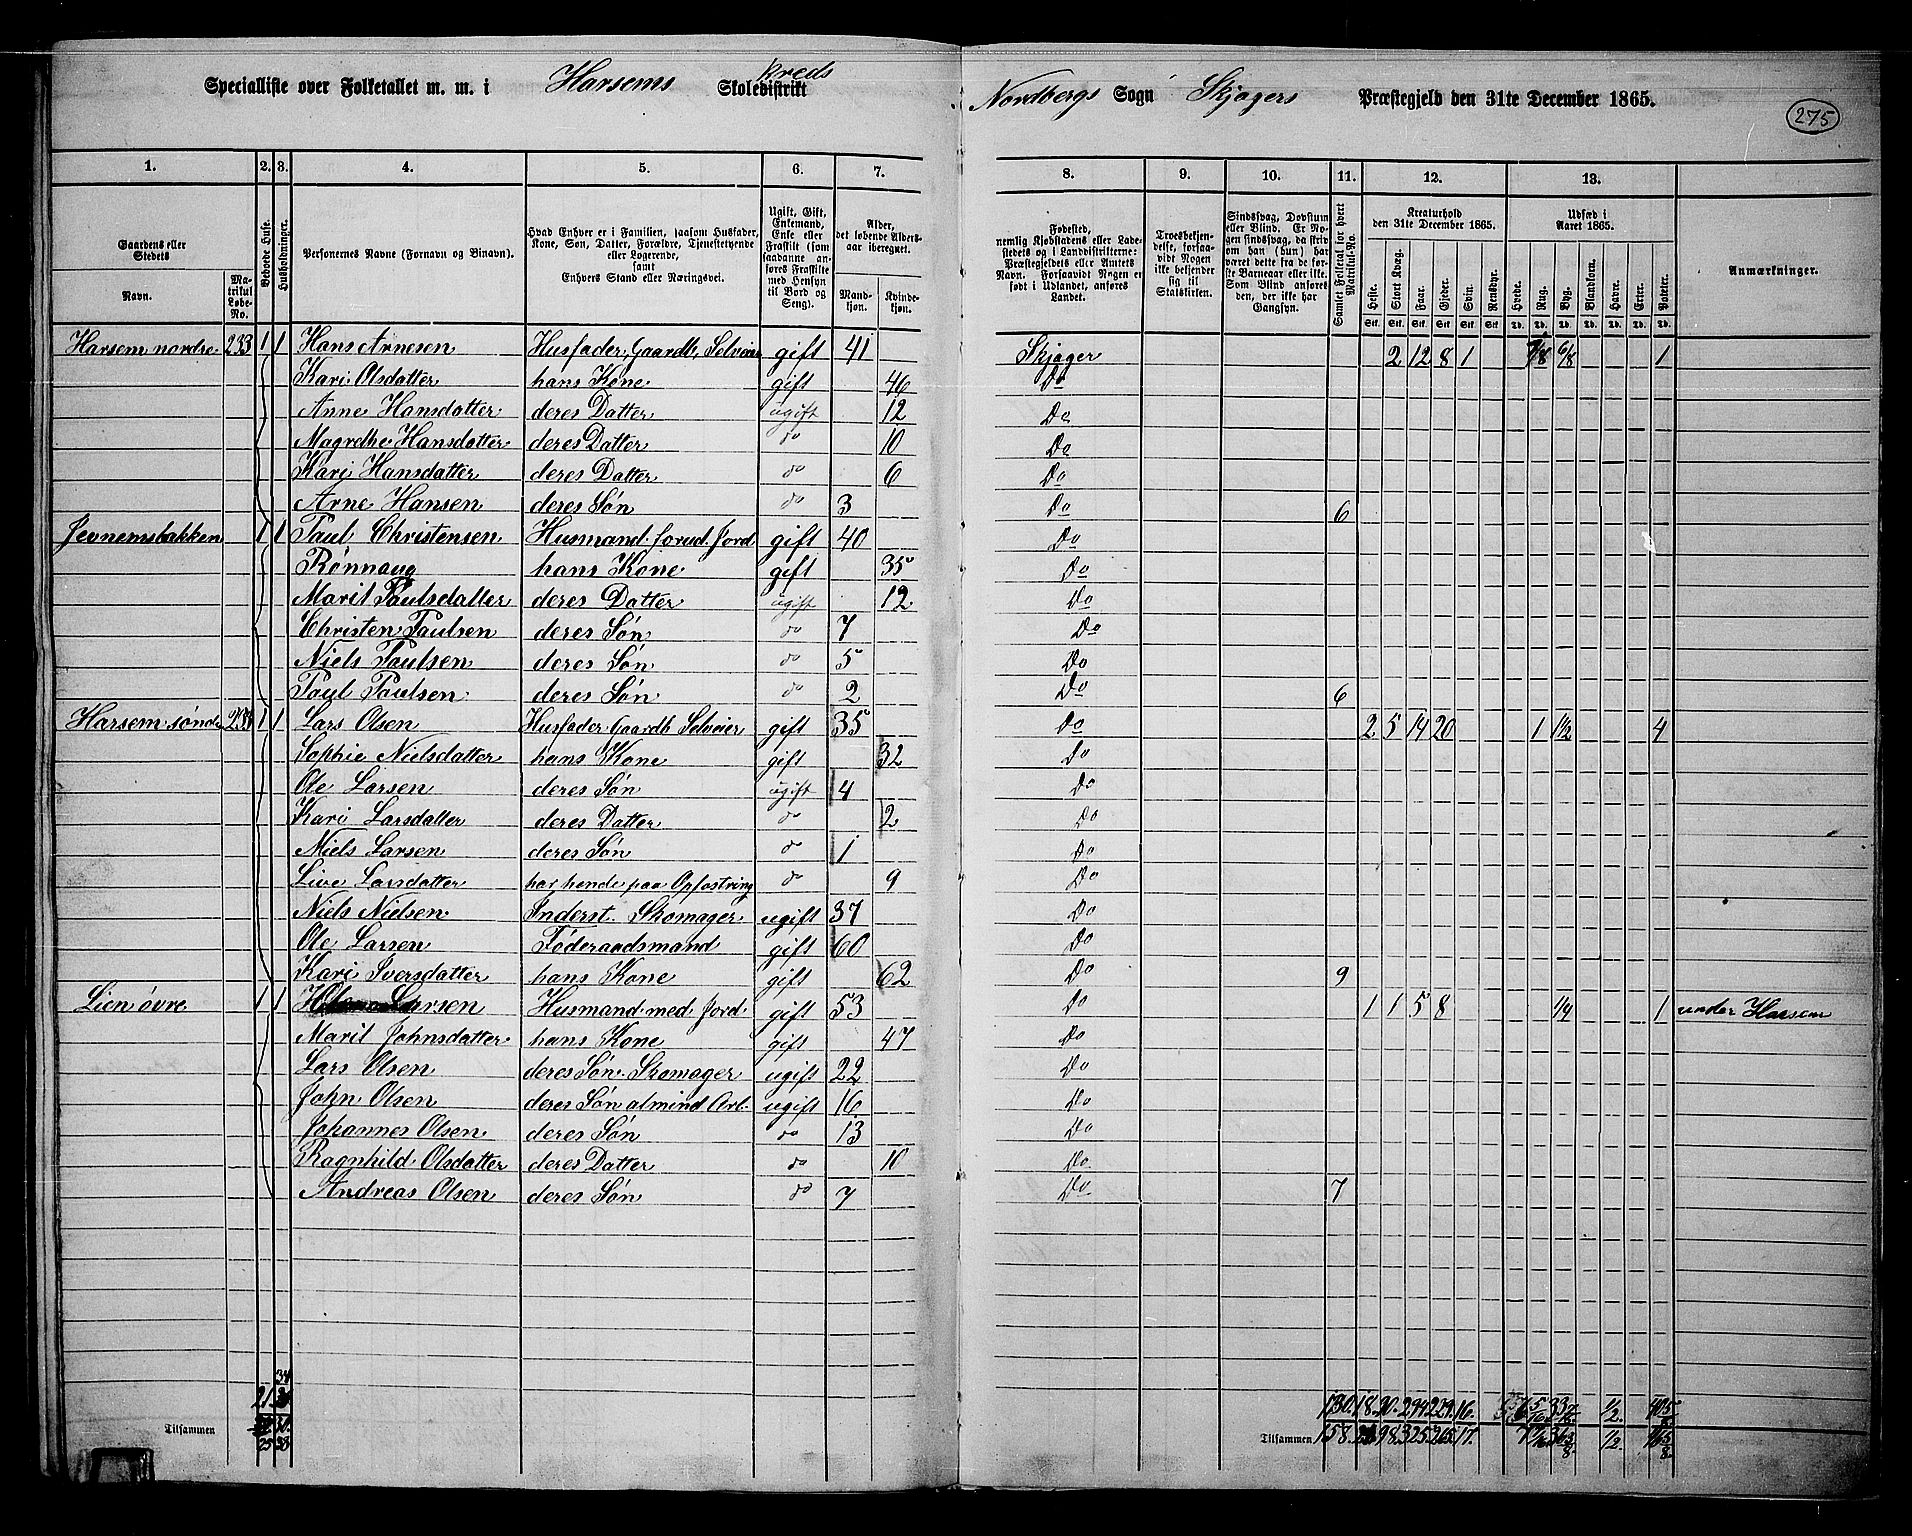 Specialliste over Folketallet m. m. i Harsems Skoledistrikt kreds Nordbergs Sogn Skjagers Præstegjeld den 31te December 1865.
275
1. 2. 3. 4. 5. 6. 7. 8. 9. 10. 11. 12. 13.
Gaardens eller Stedets
Navn. Matrikul Løbe-No.
Beboede Huse.
Husholdninger.
Personernes Navne (Fornavn og Binavn).
Hvad Enhver er i Familien, saasom Husfader, Kone, Søn, Datter, Forældre, Tjenestetyende eller Logerende, samt Enhvers Stand eller Næringsvei.
Ugift, Gift, Enkemand, Enke eller Fraskilt (som saadanne anføres Fraskilte med Hensyn til Bord og Seng).
Alder, det løbende Aldersaar iberegnet.
Mandkjøn. Kvindekjøn.
Fødested, nemlig Kjøbstadens eller Ladestedets og i Landdistrikterne: Præstegjeldets eller Amtets Navn. Forsaavidt Nogen er født i Udlandet, anføres Landet.
Troesbekjendelse, forsaavidt Nogen ikke bekjender sig til Statskirken.
Sindssvag, Døvstum eller Blind. Er Nogen sindssvag, da skriv om han (hun) har været dette fra de første Barneaar eller ikke. Som Blind ansøres den, der ikke har Gangsyn.
Samlet Folketal for hvert Matrikul-No.
Kreaturhold den 31te December 1865.
Heste. Stort Kvæg. Faar. Gjeder. Svin. Rensdyr.
Udsæd i Aaret 1865.
Hvede. Rug. Byg. Blandkorn. Havre. Erter. Poteter.
Anmærkninger.
Harsem nordre 233 1 1 Hans Arnesen Husfader, Gaardb, Selveier gift 41 Skjager 2 12 8 1 6/8 1
Kari Olsdatter hans Kone gift 46 Do
Anne Hansdatter deres Datter ugift 12 Do
Magrethe Hansdatter deres Datter do 10 Do
Kari Hansdatter deres Datter do 6 Do
Arne Hansen deres Søn do 3 Do 6
Jevnemsbakken 1 1 Paul Christensen Husmand forud. Jord gift 40 Do
Rønnaug hans Kone gift 35 Do
Marit Paulsdatter deres Datter ugift 12 Do
Christen Paulsen deres Søn do 7 Do
Niels Paulsen deres Søn do 5 Do
Paul Paulsen deres Søn do 2 Do 6
Harsem søndre 1 1 Lars Olsen Husfader Gaardb Selveier gift 35 Do 2 5 14 20 1 1½ 4
Sophie Nielsdatter hans Kone gift 32 Do
Ole Larsen deres Søn ugift 4 Do
Kari Larsdatter deres Datter do 2 Do
Niels Larsen deres Søn do 1 Do
Live Larsdatter har hende paa Opfostring do 9 Do
Niels Nielsen Inderst. Skomager ugift 37 Do
Ole Larsen Føderaadsmand gift 60 Do
Kari Iversdatter hans Kone gift 62 Do 9
Lien øvre 1 1 Larsen Husmand med Jord gift 53 Do 1 1 5 8 1 under Harsem
Marit Johnsdatter hans Kone gift 47 Do
Lars Olsen deres Søn Skomager ugift 22 Do
John Olsen deres Søn almind Arb. ugift 16 Do
Johannes Olsen deres Søn do 13 Do
Ragnhild Olsdatter deres Datter do 10 Do
Andreas Olsen deres Søn do 7 Do 7
34
21 130. 18. 294 229. 16. ½
Tilsammen 25 38 Tilsammen 158. 98. 325 265 17. ½